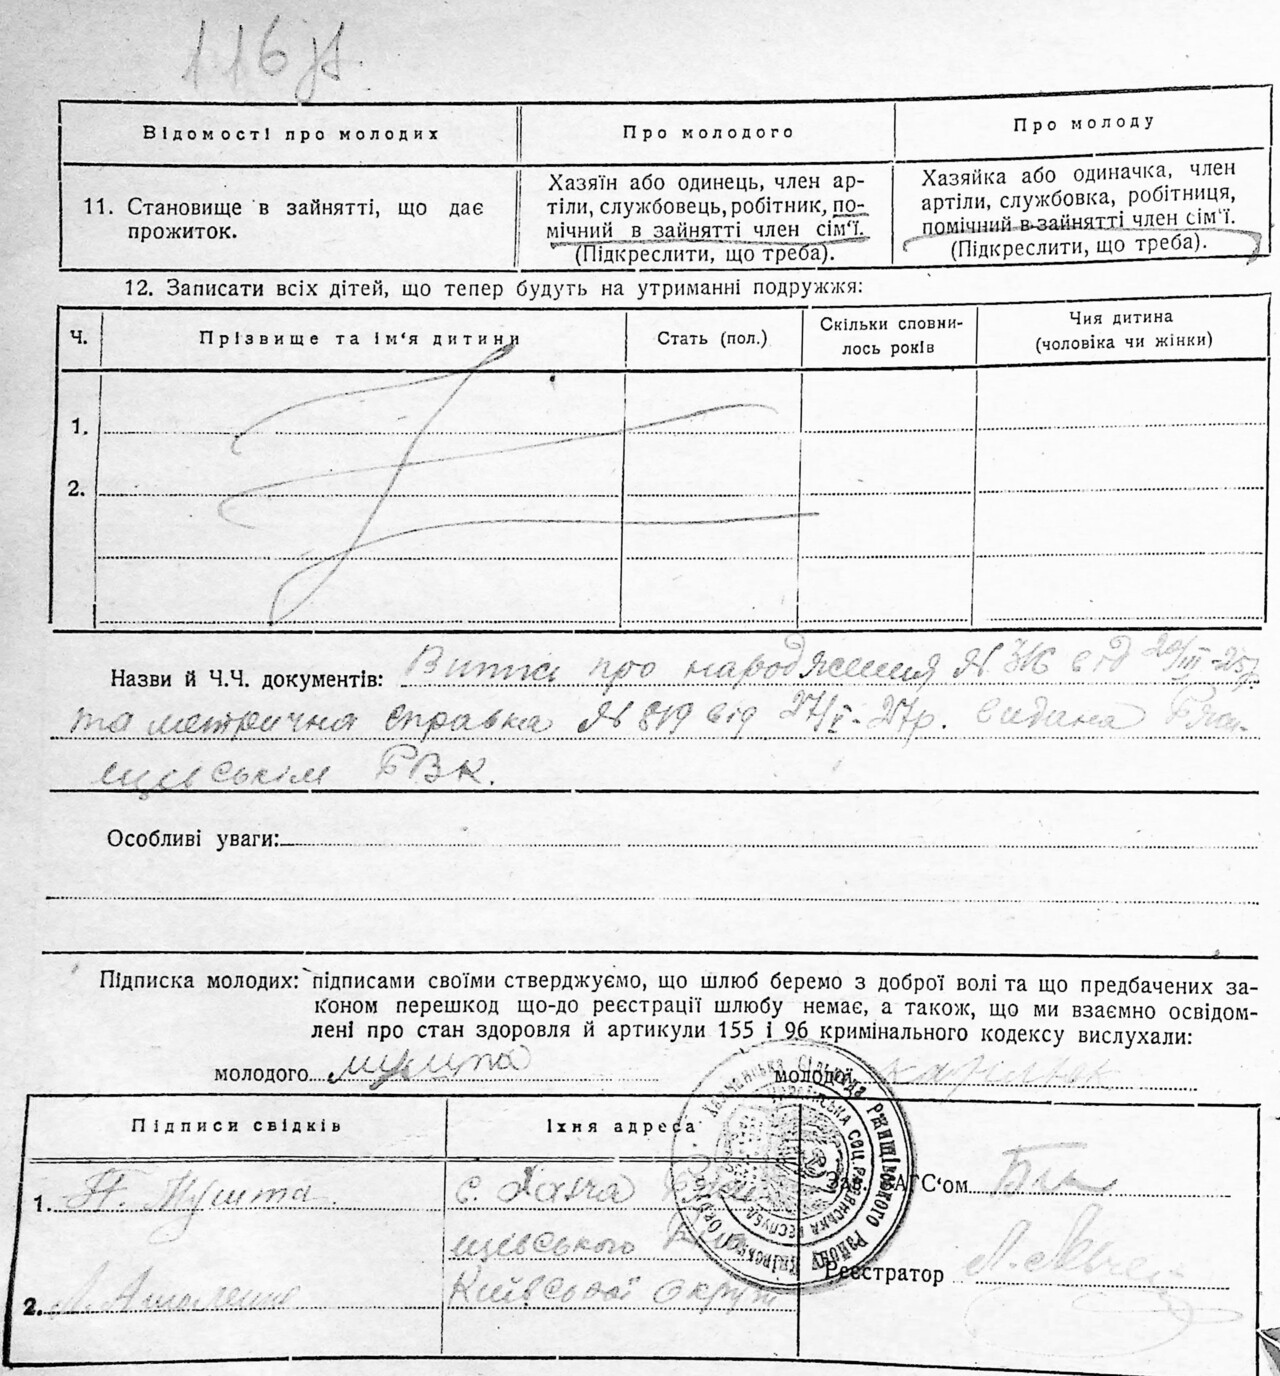 116
Відомості про молодих
Про молодого
Про молоду
11. Становище в зайнятті, що дає
прожиток.
Хазяїн або одинець, член ар-
тіли, службовець, робітник, по-
мічний в зайнятті член сім‘ї.
(Підкреслити, що треба).
Хазяйка або одиначка, член
артіли, службовка, робітниця,
помічний в зайнятті член сім‘ї.
(Підкреслити, що треба).
12. Записати всіх дітей, що тепер будуть на утриманні подружжя:
Ч.
Прізвище та ім‘я дитини
Стать (пол.)
Скільки сповни-
лось років
Чия дитина
(чоловіка чи жінки)
1.
2.
Назви й Ч.Ч. документів: Витяг про народження № 316 від 20/III-25р.
та метрична справка № 819 від 27/Х-27р. видана
РВК.
Особливі уваги:
Підписка молодих: підписами своїми стверджуємо, що шлюб беремо з доброї волі та що предбачених за-
коном перешкод що-до реєстрації шлюбу немає, а також, що ми взаємно освідом-
лені про стан здоровля й артикули 155 і 96 кримінального кодексу вислухали:
молодого
молодої
Підписи свідків
Їхня адреса
1.
с.
Зав. ЗАГС‘ом
2.
Київської округи
Реєстратор